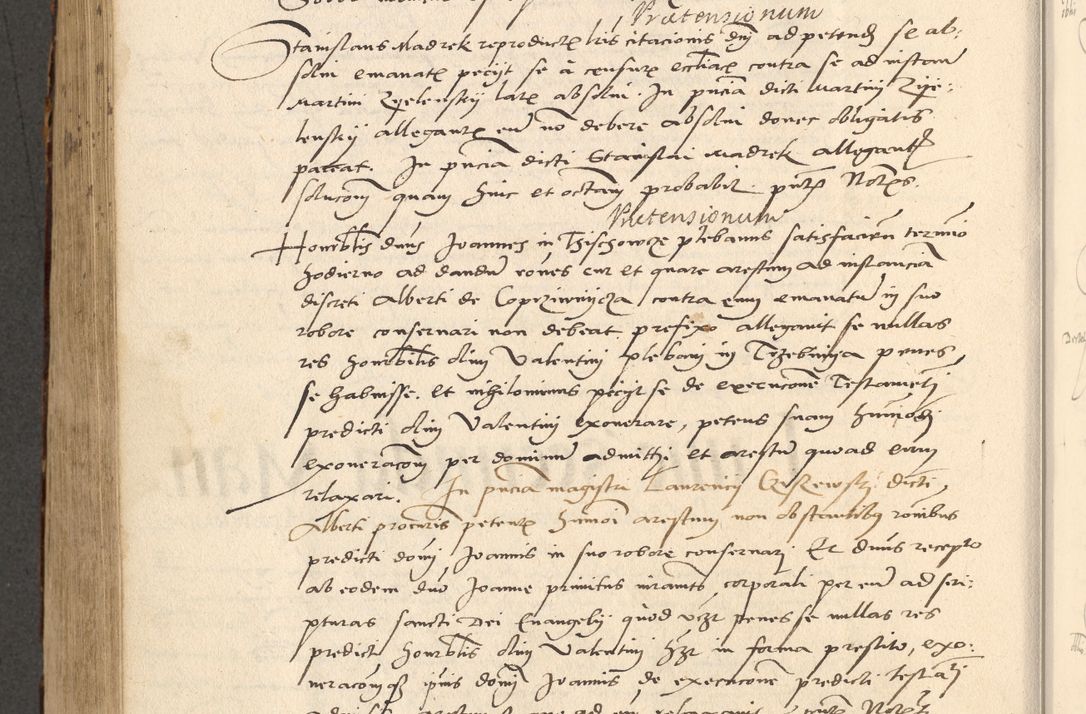 Prætensionum
Stanislaus Madrek reproductæ lris citacionis dnj ad petend se ab:
solui emanatæ pecijt se à censuræ eccliacæ contra se ad instam
Martini Zÿelenskÿ latæ absolui. In pncia dicti Martinj Zije:
lenskÿ allegantæ eum nõ debere absolui donec obligatis
pareat. In pncia dicti Stanislai Madrek allegantis
solucom quam hinc et octam probabit. pntæ Notæ.
Prætensionum
Honorblis dnus Joannes in plebanus satisfacien termio
hodierno ad dandum rones cur et quare arestum ad instanciã
discreti Alberti de contra eum emanatũ in suo
robore conseruari non debeat prefixo allegauit se nullas
res honorblis olim Valentinj plebani in Trzebinija penes
se habuisse. Et nihilominus pecijt se de execucõne Testamẽti
predicti olim Valentinj exonerare, petens suam hmoi
exoneracom per dominũ admitthi et arestũ quoad eum
relaxari. In pncia magistri Laurencij dicti
Alberti procuris petentæ hmoi arestum non obstantibus ronibus
predicti domi Joannis in suo robore conseruarj Et dnus recepto
ab eodem dno Joanne primitus iuramto corporali per eum ad scri:
pturas sancti Dei Euangelij quod penes se nullas res
predicti honorblis olim Valentinj in forma prestito, exo:
neracom domi Joannis de execucone predicti testati